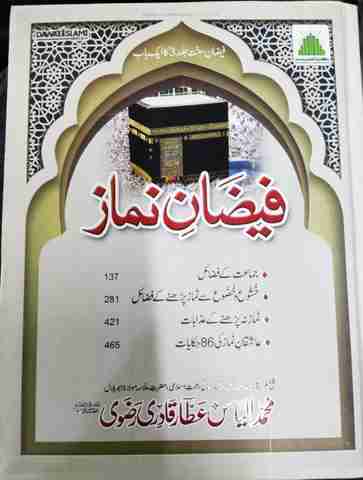 DAWATEISLAMI
فیضانِ سنّت جلد 3 کا ایک باب
فیضانِ نماز
جماعت کے فضائل 137
خشوع و خضوع سے نماز پڑھنے کے فضائل 281
نماز نہ پڑھنے کے عذابات 421
عاشقانِ نماز کی 86 حکایات 465
محمد الیاس عطار قادری رضوی